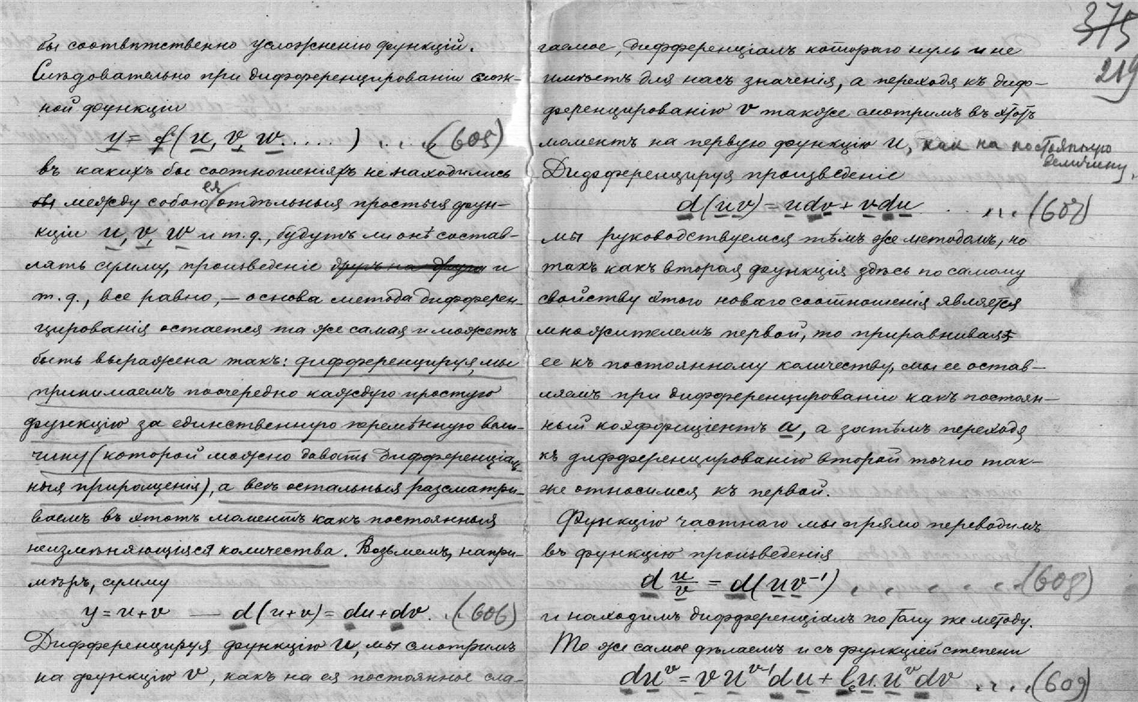 бы соотвѣтственно усложненію функцій.
Слѣдовательно при дифференцированіи слож-
ной функціи
y = f(u, v, w.....) .... (605)
въ какихъ бы соотношеніяхъ не находились
между собою ея отдѣльныя простыя фун-
кціи u, v, w и т.д., будутъ ли онѣ состав-
лять сумму, произведеніе другъ на друга и
т.д., все равно, — основа метода дифферен-
цированія остается та же самая и можетъ
быть выражена такъ: дифференцируя, мы
принимаемъ поочередно каждую простую
функцію за единственную перемѣнную вели-
чину (которой можно давать дифференціаль-
ныя приращенія), а всѣ остальныя разсматри-
ваемъ въ этотъ моментъ какъ постоянныя
неизмѣняющіяся количества. Возьмемъ, напри-
мѣръ, сумму
y = u+v — d(u+v) = du+dv. .(606)
Дифференцируя функцію u, мы смотримъ
на функцію v, какъ на ея постоянное сла-
375
219
гаемое, дифференціалъ котораго нуль и не
имѣетъ для насъ значенія, а переходя къ диф-
ференцированію v также смотримъ въ этотъ
моментъ на первую функцію u, какъ на постоянную
величину.
Дифференцируя произведеніе
d(uv) = udv + vdu .... (607)
мы руководствуемся тѣмъ же методомъ, но
такъ какъ вторая функція здѣсь по самому
свойству этого новаго соотношенія является
множителемъ первой, то приравнивая
ее къ постоянному количеству, мы ее остав-
ляемъ при дифференцированіи какъ постоян-
ный коэффиціентъ a, а затѣмъ переходя
къ дифференцированію второй точно так-
же относимся къ первой.
Функцію частнаго мы прямо переводимъ
въ функцію произведенія
d u/v = d(uv⁻¹) .... (608)
и находимъ дифференціалъ по тому же методу.
То же самое дѣлаемъ и съ функціей степени
duᵛ = vuᵛ⁻¹du + lu.uᵛdv .... (609)